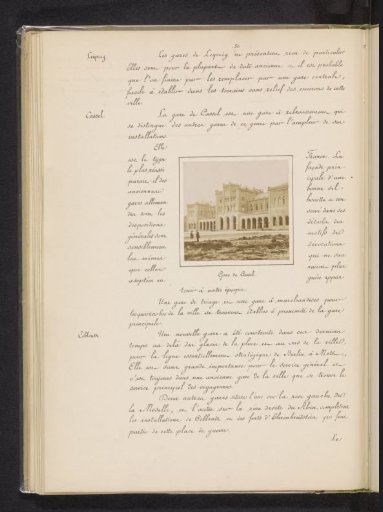 50
Leipzig
Les gares de Leipzig ne présentent rien de particulier
Elles sont pour la plupart de date ancienne et il est probable
que l'on finira par les remplacer par une gare centrale,
facile à établir dans les terrains sans relief des environs de cette
ville.
Cassel
La gare de Cassel est une gare à rebroussement qui
se distingue des autres gares de ce genre par l'ampleur de ses
installations.
Elle
est le type
le plus réussi
des
anciennes
gares alleman
des dont les
dispositions
générales sont
sensiblement
les mêmes
que celles
adoptées en
France. La
façade prin-
cipale d'une
bonne sil-
houette a con-
servé dans ses
détails des
motifs de
décorations
qui ne sau-
raient plus
guère appar-
Gare de Cassel.
tenir à notre époque.
Une gare de triage et une gare à marchandises pour
la ville se trouvent établies à proximité de la gare
principale.
Coblentz
Une nouvelle gare a été construite dans ces derniers
temps au delà des glacis de la place et au sud de la ville,
pour la ligne essentiellement stratégique de Berlin à Metz.
Elle est sans grande importance pour le service général et
c'est toujours dans une ancienne gare de la ville que se trouve le
service principal des voyageurs.
Deux autres gares situées l'une sur la rive gauche de
la Moselle, et l'autre sur la rive droite du Rhin, complètent
les installations de Coblentz et des forts d'Ehrenbreitstein qui font
partie de cette place de guerre.
Les